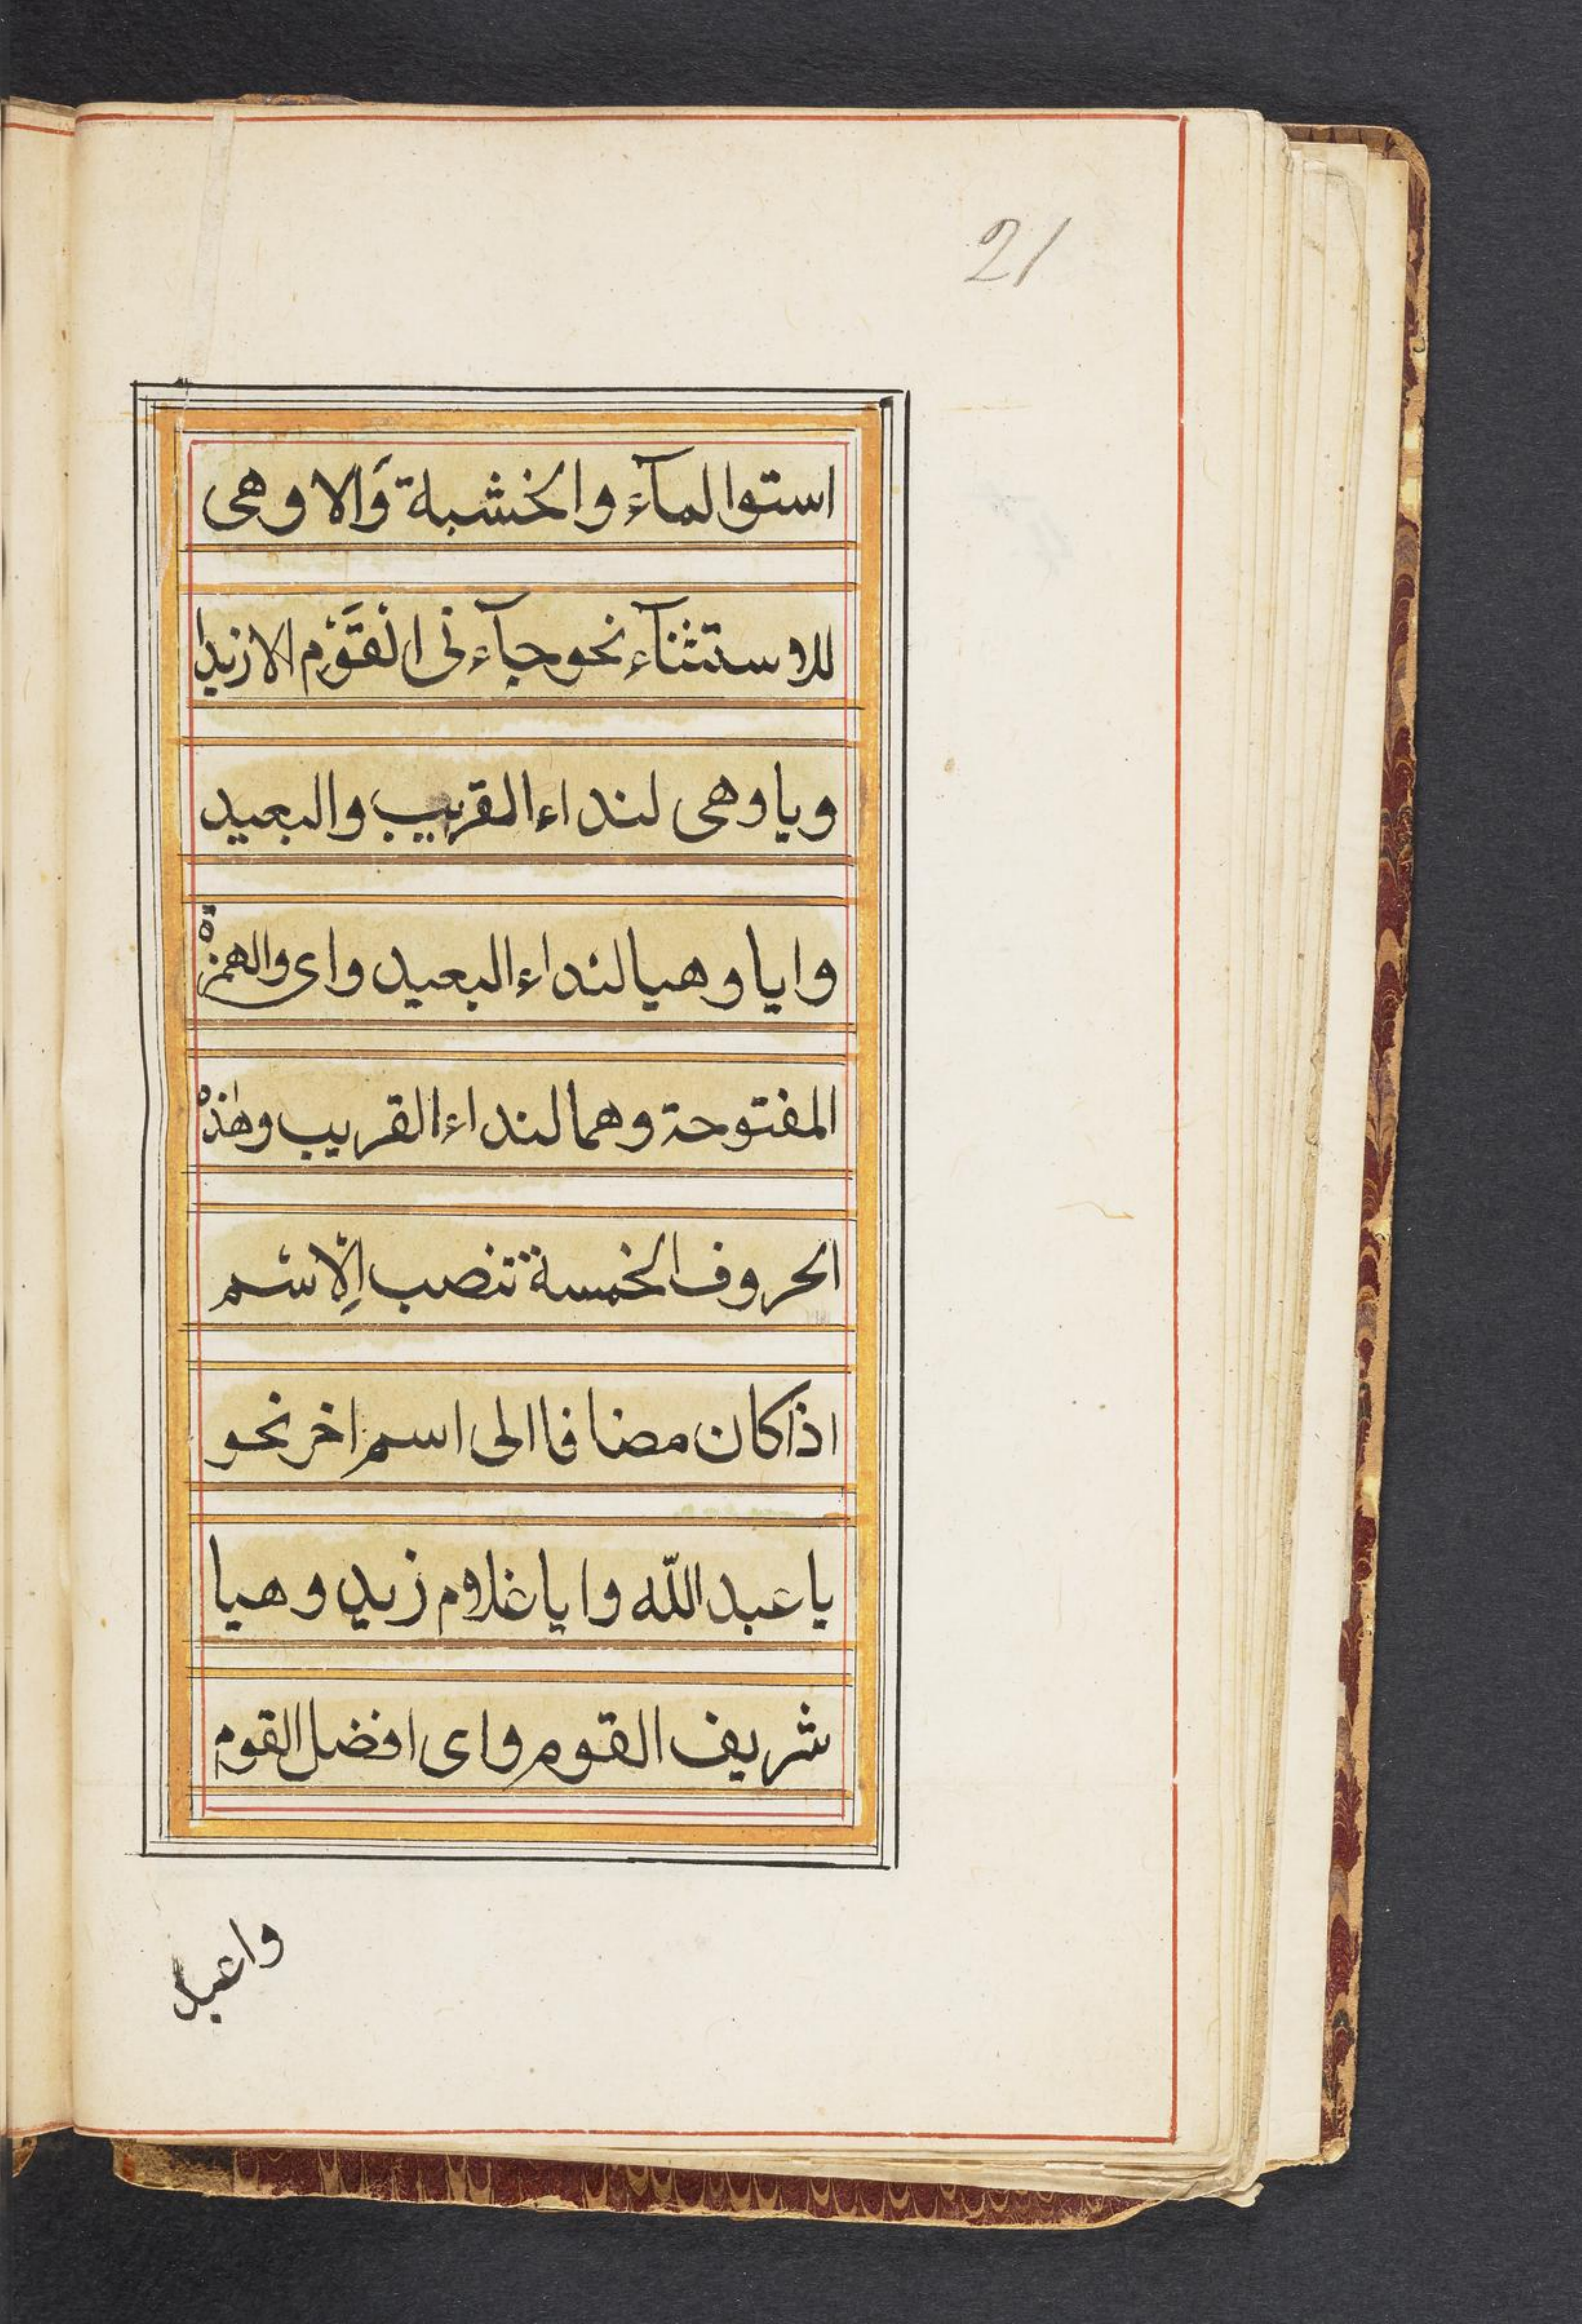 21
استوا المآء والخشبة وَالا وهى
للاستثنآء نحو جآءنى القَوْم الا زيدا
ويا وهى لنداء القريب والبعيد
وايا وهيا لنداء البعيد واى والهمزْة
المفتوحة وهما لنداء القريب وهٰذه
الحروف الخمسة تنصب اِلْاسْم
اذا كان مضافا الى اسم اخر نحو
يا عبد اللّه وايا غلام زيد وهيا
شريف القوم واى افضل القوم
واعبد